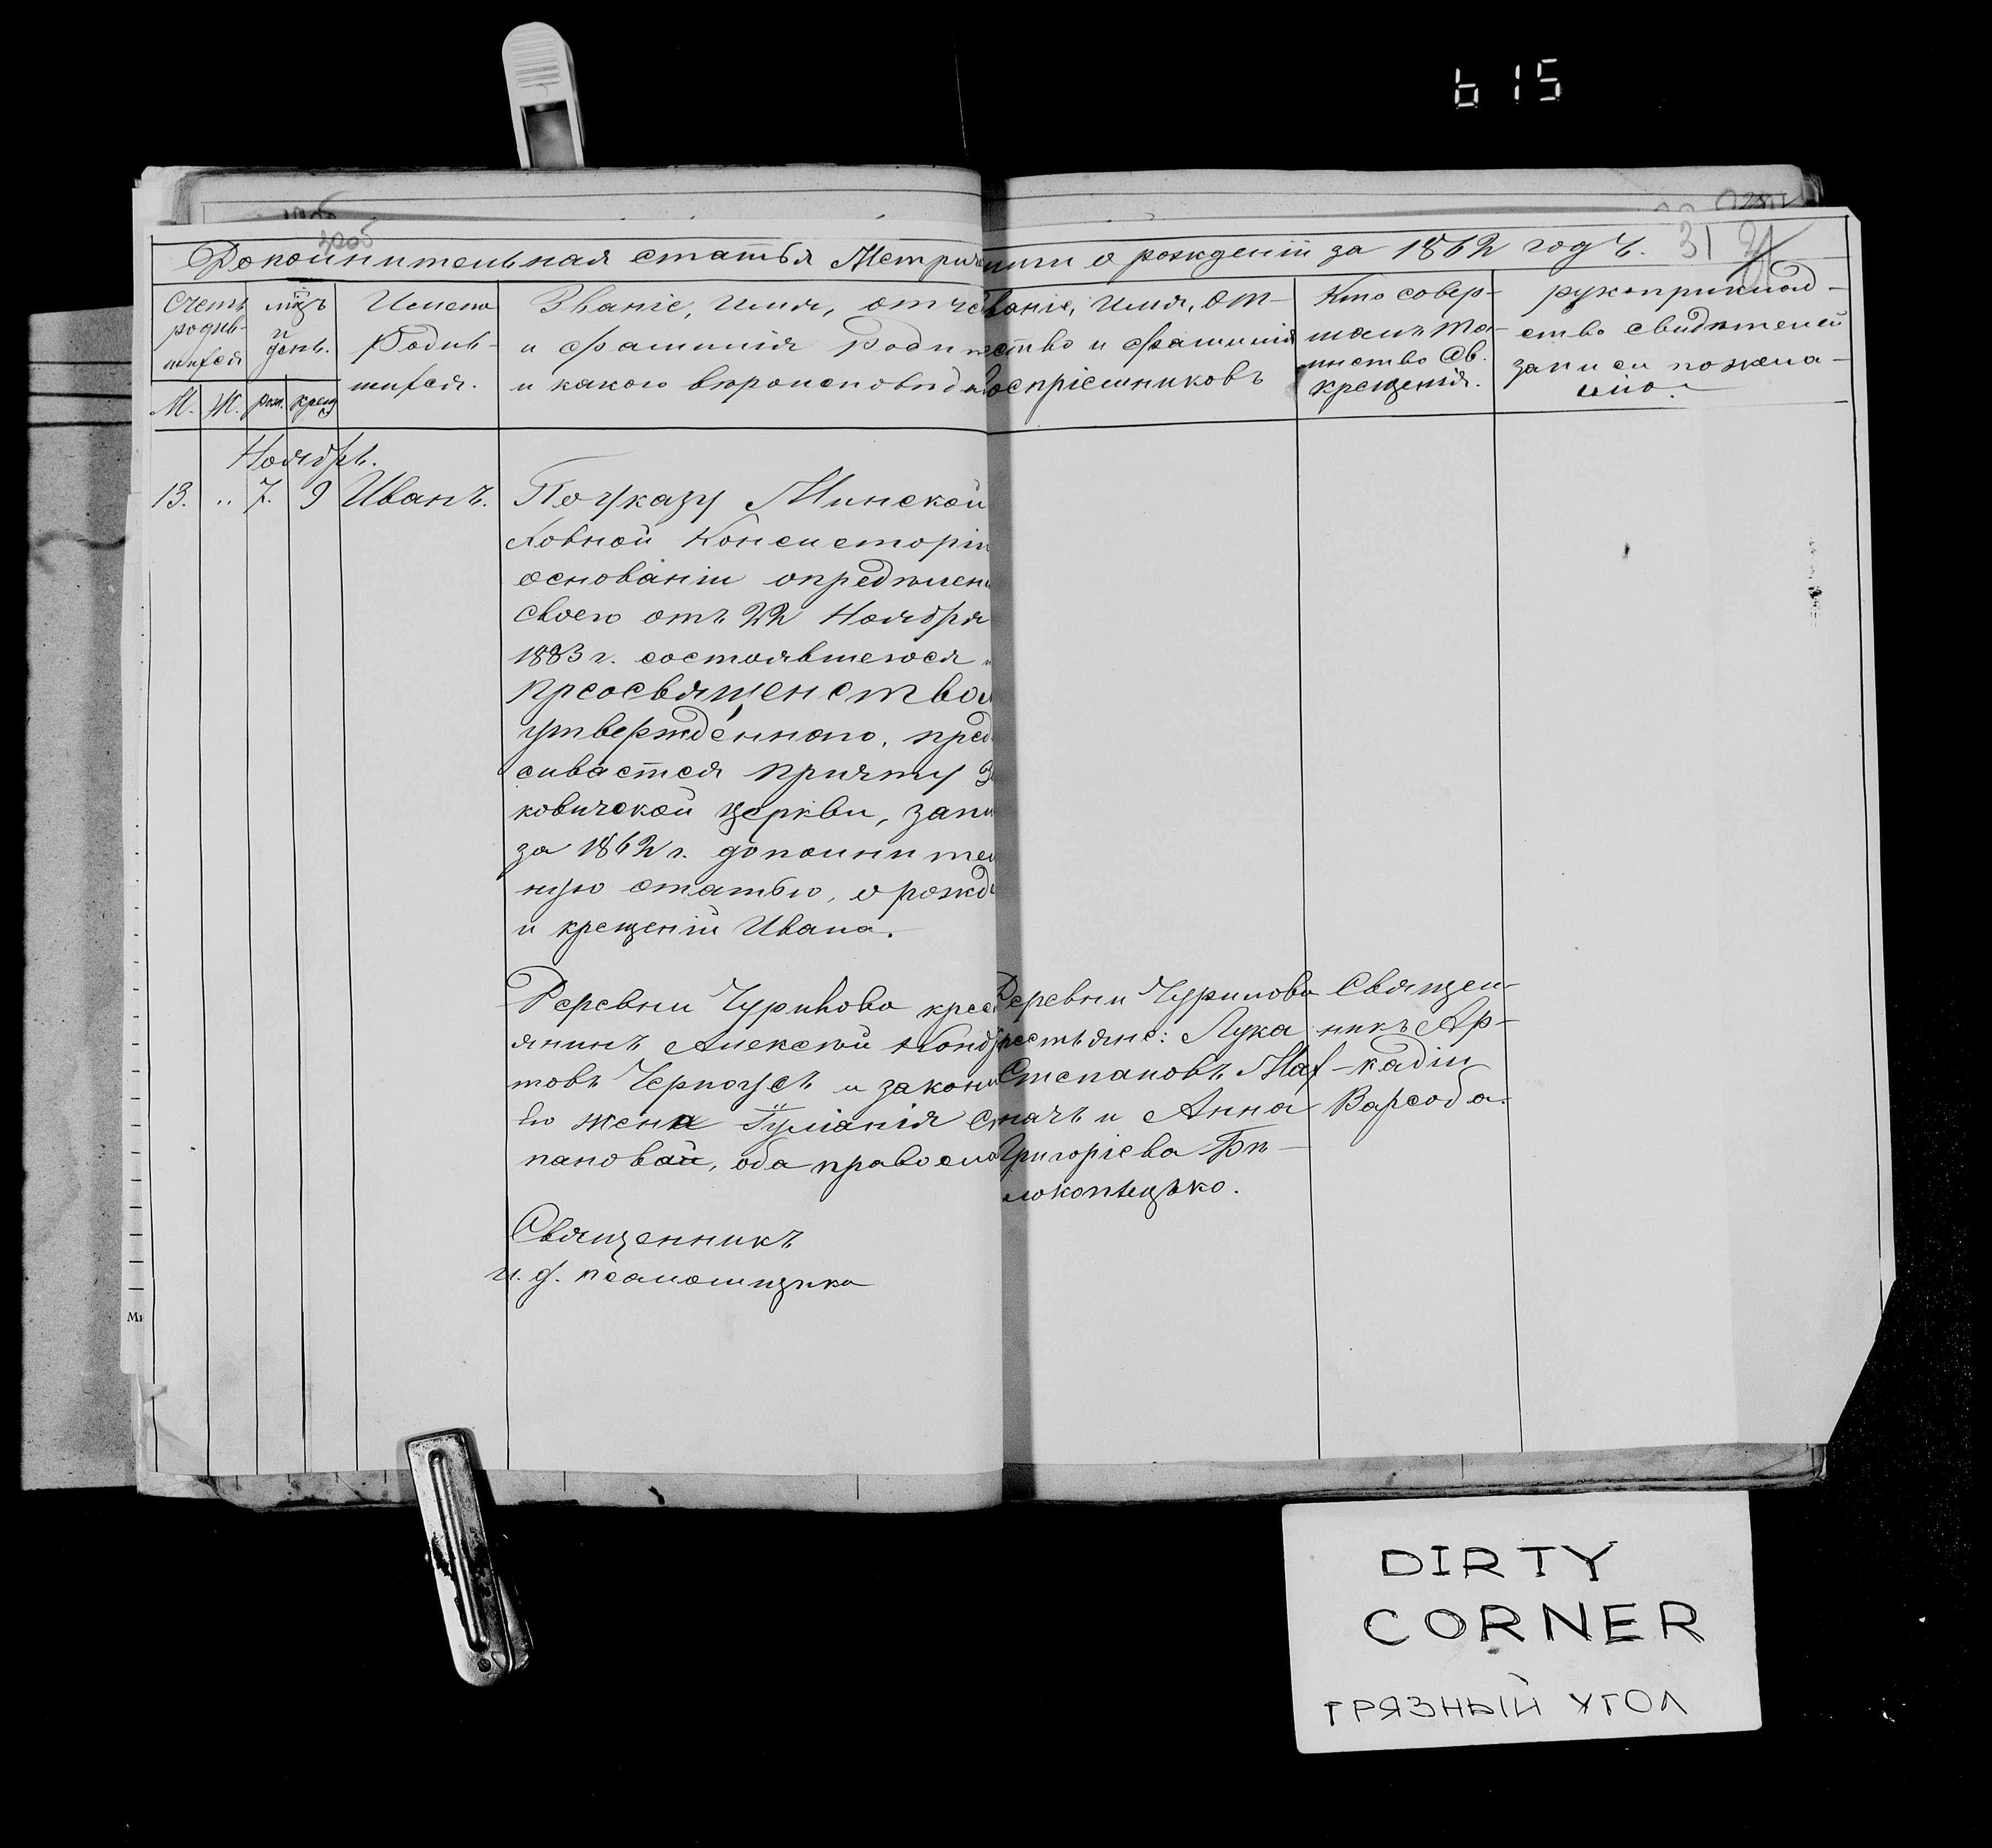 615
31
Дополнительная статья Метрич
ниги о рожденіи за 1862 годъ.
Счетъ родив-шихся
мѣцъ и день.
Имена Родив-шихся.
Званіе, имя, отчес
и фамилія Роди
и какого вѣроисповѣд
ваніе, имя, от-
чество и фамилія
воспріемниковъ
Кто совер-
шалъ та-
инство Св.
крещенія.
рукоприклад-
ство свидѣтелей
записи по жела-
нію.
М. Ж. рож. крещ
Ноябрь.
13. „ 7. 9 Иванъ. По указу Минской
ховной Консисторіи
основаніи опредѣлен
своего отъ 22 Ноября
1883 г. состоявшегося
Преосвященством
утвержденного, пред
сывается причту
ковичской церкви, запи
за 1862 г. дополнител
ную статью, о рожде
и крещеніи Ивана.
Деревни Чурилово крест
янинъ Алексѣй Конд
товъ Черноусъ и законн
его жена Іуліанія С
пановай, оба правосла
Священникъ
и. д. псаломщика
Деревни Чурилово
крестьяне: Лука
Степановъ
начъ и Анна
Григоріева Бѣ-
локопыцько.
Священ-
никъ Ар-
кадій
Варсоба.
DIRTY
CORNER
ГРЯЗНЫЙ УГОЛ